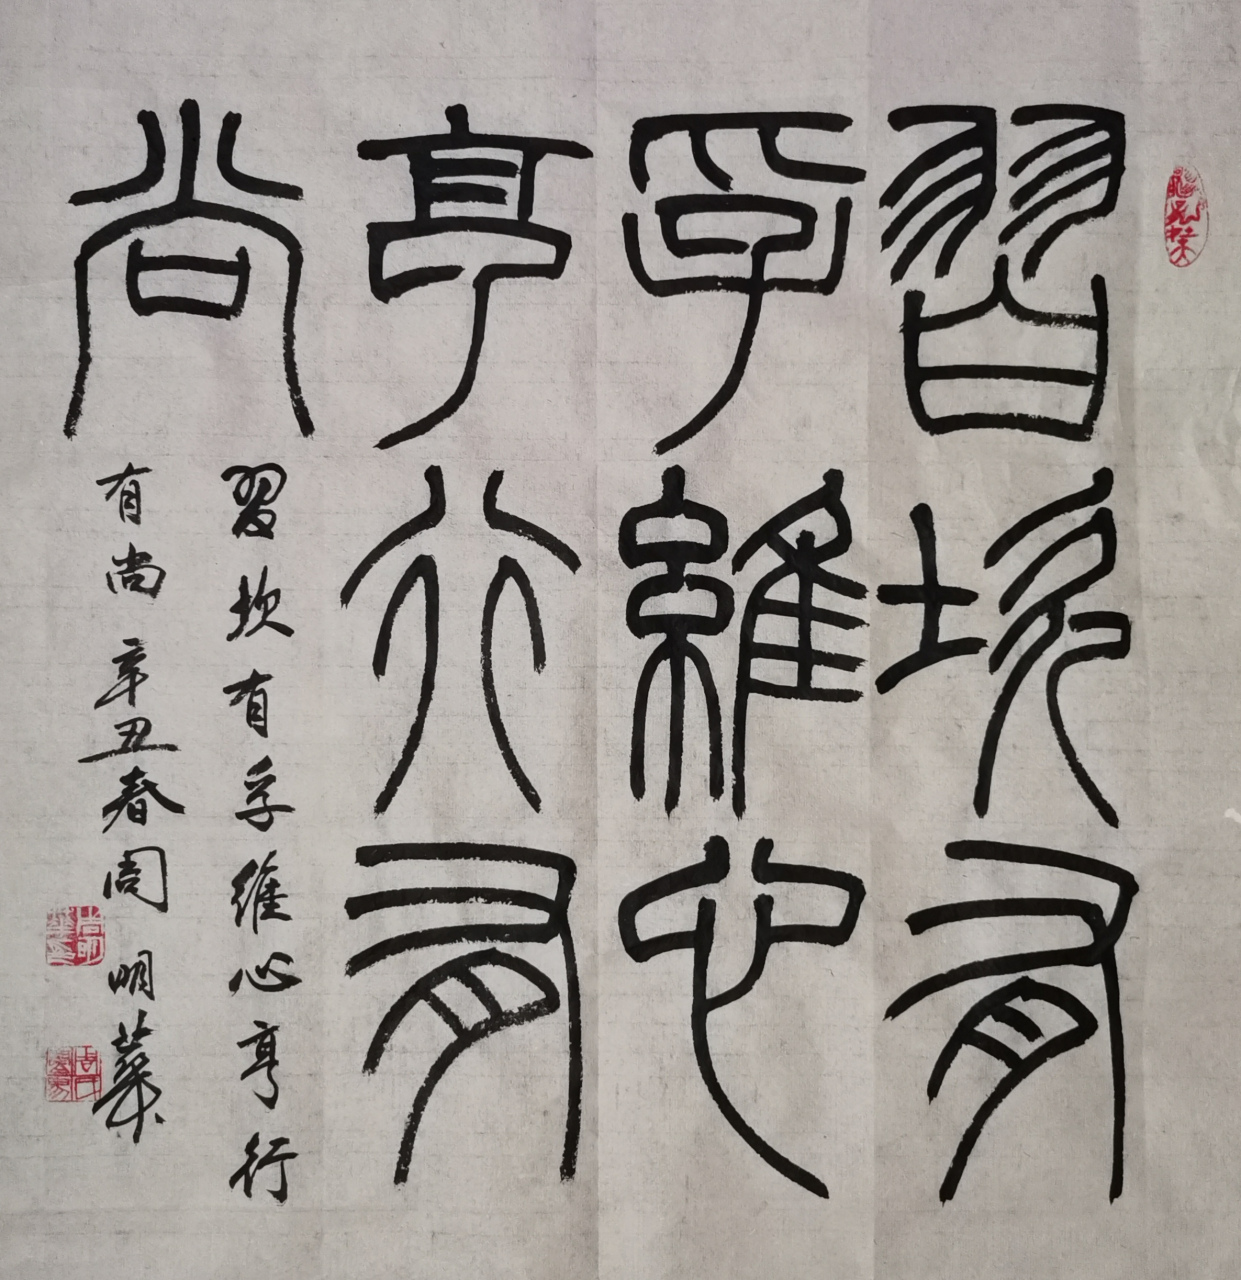 習坎有
孚維心
亨行有
尚
習坎有孚維心亨行
有尚辛丑春周明華